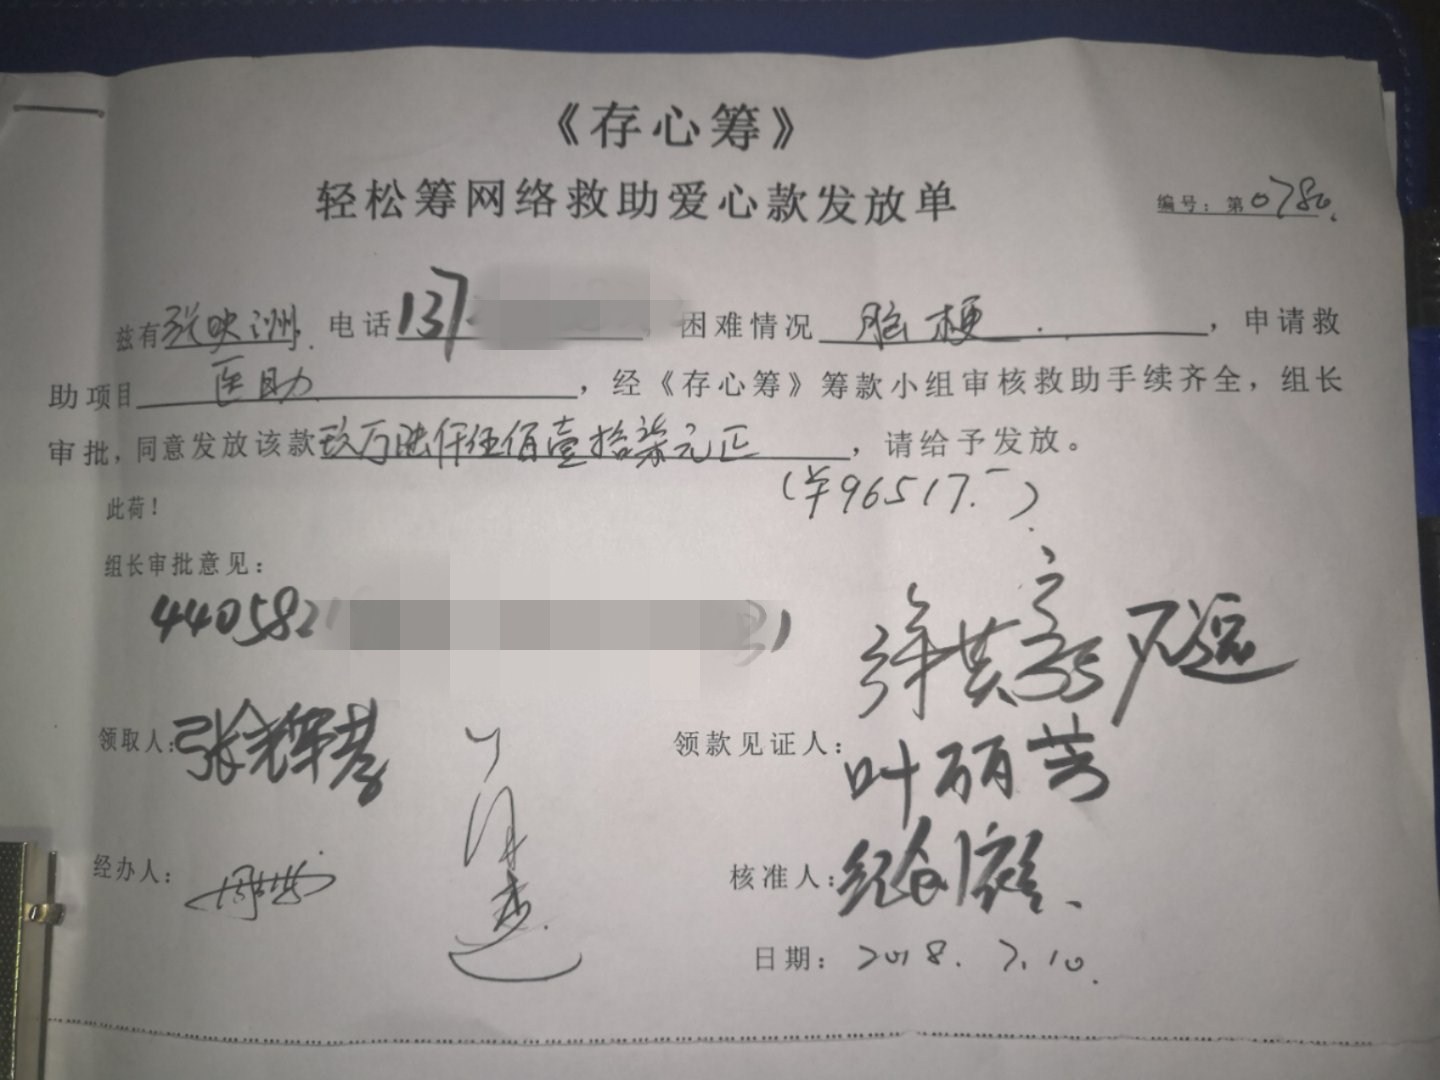 《存心筹》
轻松筹网络救助爱心款发放单
编号：第0780.
兹有张映洲. 电话137 困难情况 脑梗 . ，申请救
助项目 医助 ，经《存心筹》筹款小组审核救助手续齐全，组长
审批，同意发放该款玖万陆仟伍佰壹拾柒元正，请给予发放。
(￥96517.-)
此荷！
组长审批意见：
440582 31
领取人：张 领款见证人：
叶丽芳
经办人： 核准人：
日期：2018.7.10.